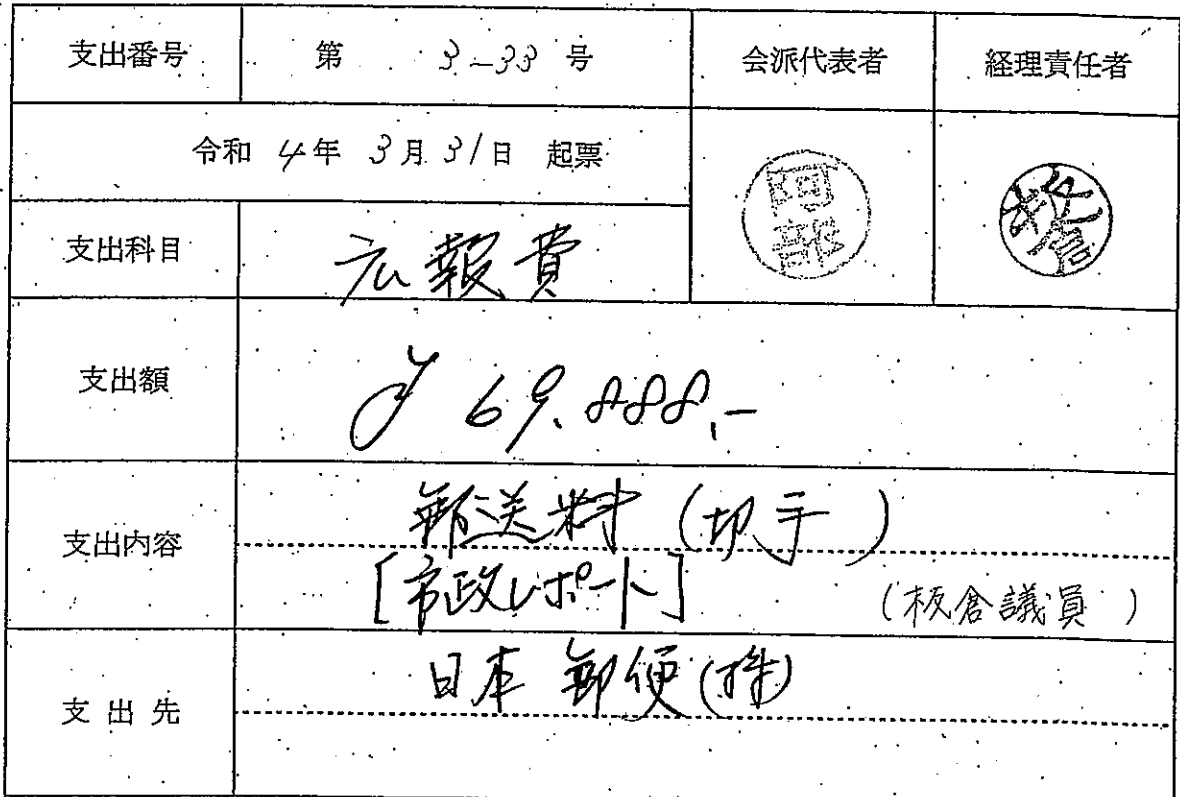 支出番号 第 3-33 号 会派代表者 経理責任者
令和 4年 3月 31日 起票
阿部
板倉
支出科目 広報費
支出額 ¥69,888.-
支出内容 郵送料 (切手)
[市政レポート] (板倉議員)
支出先 日本郵便(株)